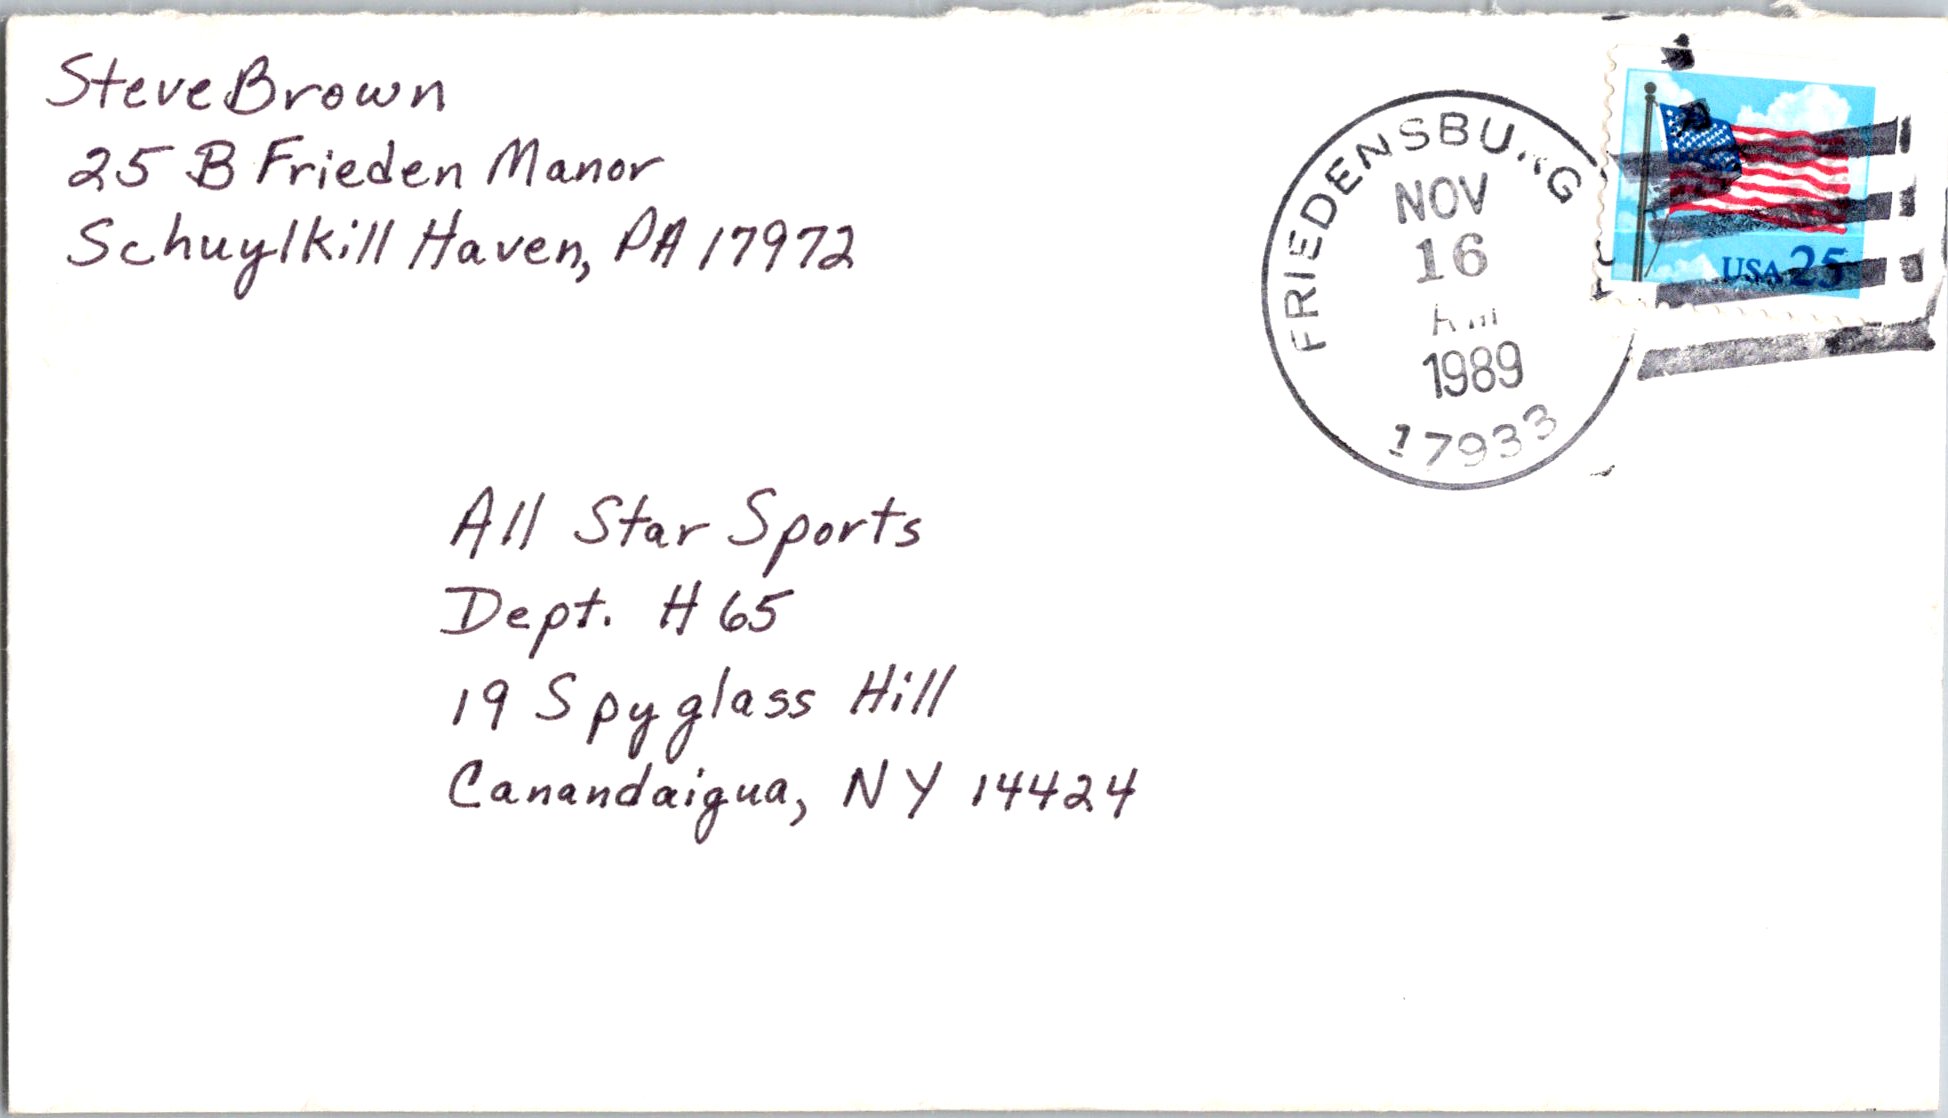 Steve Brown
25 B Frieden Manor
Schuylkill Haven, PA 17972
FRIEDENSBURG
NOV
16
AM
1989
17933
USA 25
All Star Sports
Dept. H65
19 Spyglass Hill
Canandaigua, NY 14424